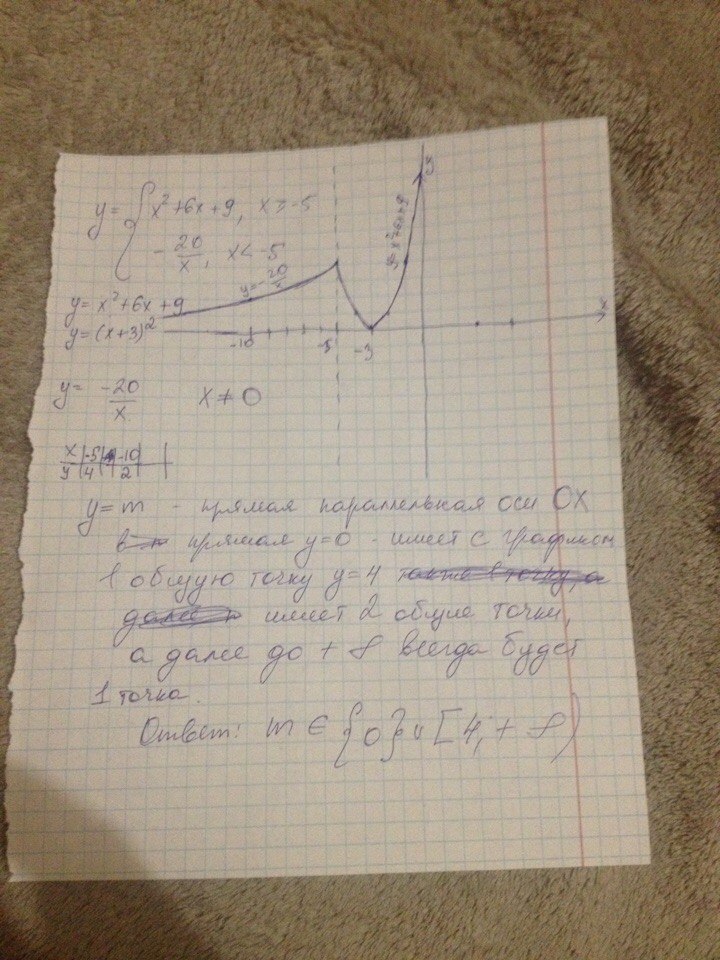 y = { x² + 6x + 9, x ≥ -5
- 20/x, x < -5
y = x² + 6x + 9
y = (x+3)²
y = -20/x
y = x² + 6x + 9
y
x
-10
-5
-3
y = -20/x x ≠ 0
x | -5 | -10
y | 4 | 2
y = m - прямая параллельная оси OX
прямая y=0 - имеет с графиком
1 общую точку y=4
имеет 2 общие точки,
а далее до +∞ всегда будет
1 точка.
Ответ: m ∈ {0} ∪ [4; +∞)